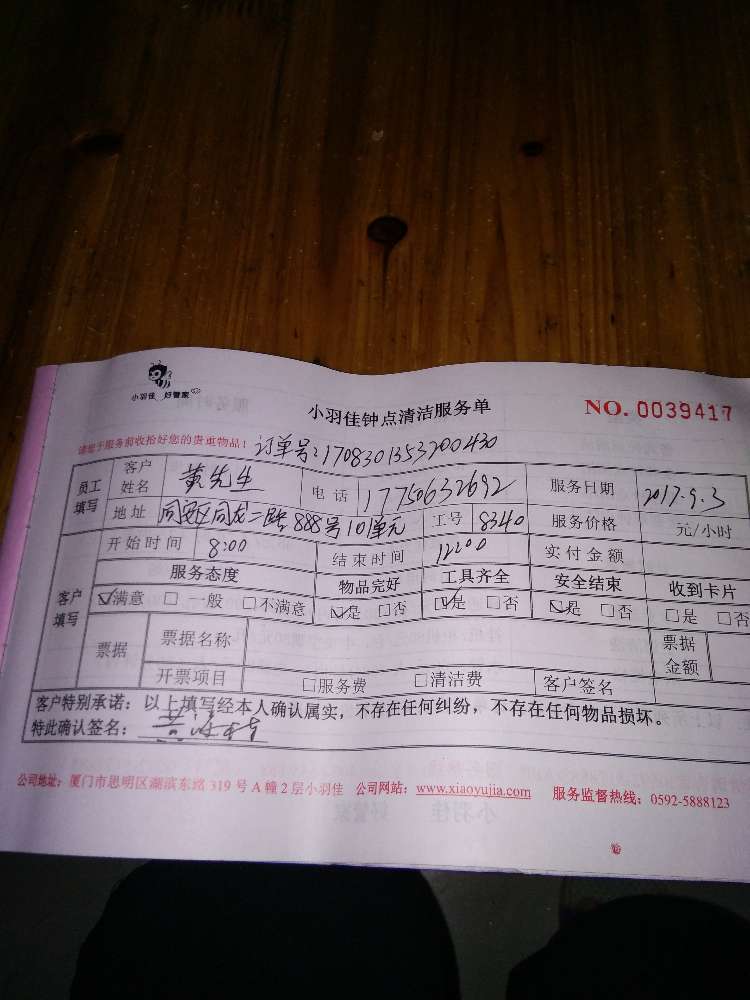 小羽佳 好管家
小羽佳钟点清洁服务单 NO. 0039417
请您于服务前收拾好您的贵重物品! 订单号:1708301353200430
员工填写 客户姓名 黄先生 电话 17750632692 服务日期 2017.9.3
地址 同安区同龙二路888号101单元 工号 8340 服务价格 元/小时
客户填写 开始时间 8:00 结束时间 12:00 实付金额
服务态度 物品完好 工具齐全 安全结束 收到卡片
☑满意 □一般 □不满意 ☑是 □否 ☑是 □否 ☑是 □否 □是 □否
票据 票据名称 票据金额
开票项目 □服务费 □清洁费 客户签名
客户特别承诺:以上填写经本人确认属实,不存在任何纠纷,不存在任何物品损坏。
特此确认签名:
公司地址:厦门市思明区湖滨东路319号A幢2层小羽佳 公司网站:www.xiaoyujia.com 服务监督热线:0592-5888123